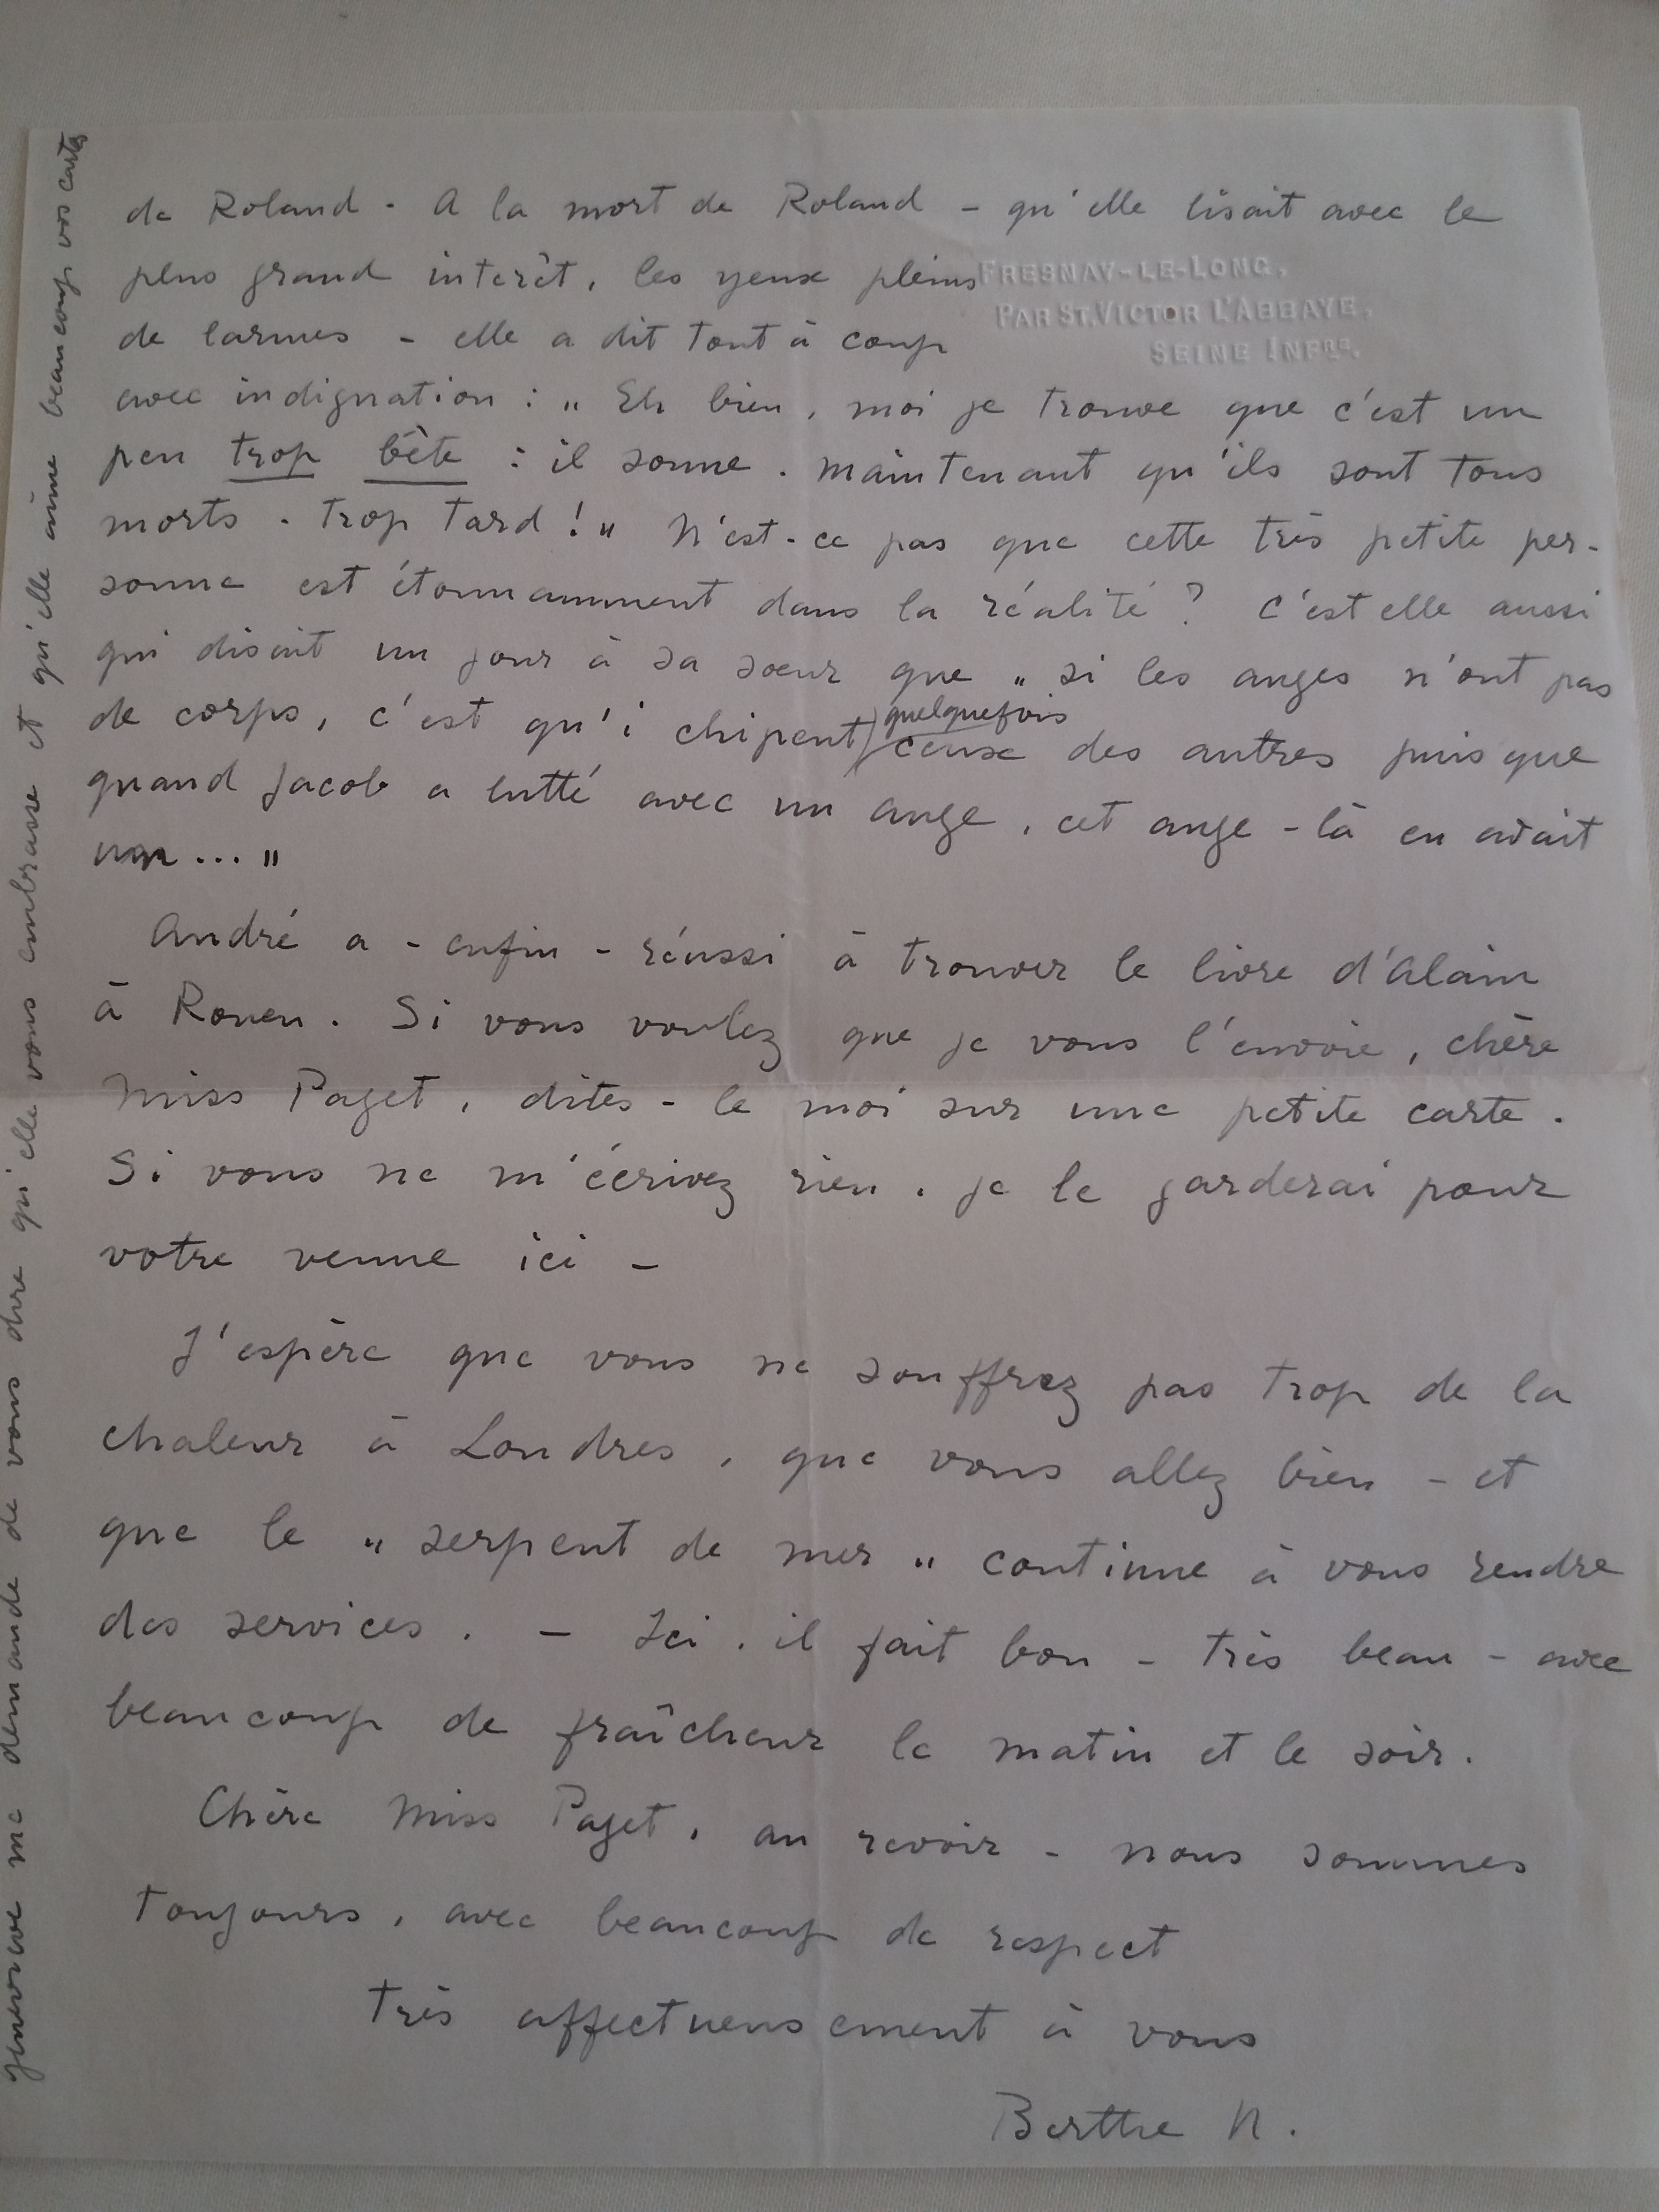 de Roland - A la mort de Roland - qu'elle lisait avec le
plus grand interêt, les yeux pleins
FRESNAY-LE-LONG,
PAR ST. VICTOR L'ABBAYE,
SEINE INFRE.
de larmes - elle a dit tout à coup
avec indignation : „ Eh bien, moi je trouve que c'est un
peu trop bête : il sonne, maintenant qu'ils sont tous
morts - trop tard ! " N'est-ce pas que cette très petite per-
sonne est étonnamment dans la réalité ? C'est elle aussi
qui disait un jour à sa soeur que „ si les anges n'ont pas
de corps, c'est qu'i chipent quelquefois ceux des autres puisque
quand Jacob a lutté avec un ange, cet ange-là en avait
un... "
André a - enfin - réussi à trouver le livre d'Alain
à Rouen. Si vous voulez que je vous l'envoie, chère
Miss Paget, dites-le moi sur une petite carte.
Si vous ne m'écrivez rien, je le garderai pour
votre venue ici -
J'espère que vous ne souffrez pas trop de la
chaleur à Londres, que vous allez bien - et
que le „ serpent de mer " continue à vous rendre
des services. - Ici, il fait bon - très beau - avec
beaucoup de fraîcheur le matin et le soir.
Chère Miss Paget, au revoir - nous sommes
toujours, avec beaucoup de respect
très affectueusement à vous
Berthe N.
geneviève me demande de vous dire qu'elle vous embrasse et qu'elle aime beaucoup vos cartes